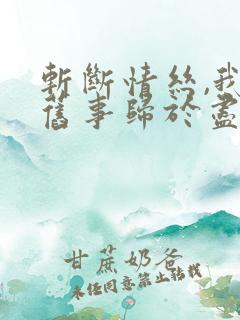 斬斷情絲,我
舊事歸於盡
甘蔗奶爸
未經同意禁止轉載